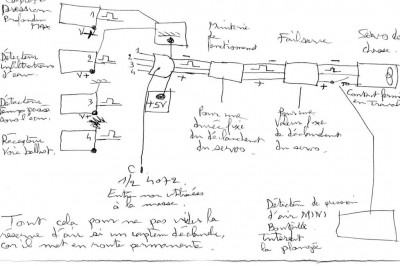 Pression
Profondeur
MAX
1
V+
Détecteur
infiltrations
d'eau.
2
V+
Détecteur
3
V+
Récepteur
Voie ballast.
4
1
2
3
4
+5V
Minuterie
de
fonctionnement
Failsafe
Servo de
chasse.
+
-
+
-
+
-
Contact fermé
en Travail
Pour une
durée fixe
du déclenchement
du servo.
Pour une
Valeur fixe
de déclenchement
du servo.
C
1/2 4072
Entrées non utilisées
à la masse.
Détection de pression
d'air MINI
Bouteille
Interdit
la plongée
Tout cela pour ne pas vider la
réserve d'air si un capteur déclenche,
car il met en route permanente.